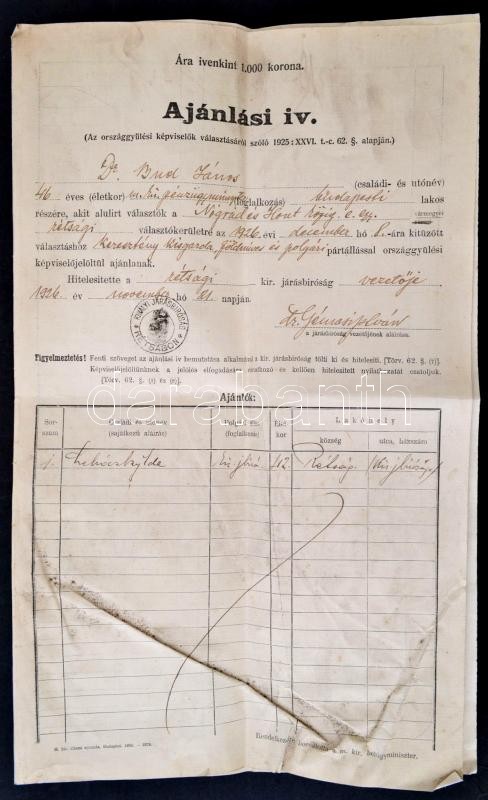 Ára ivenkint 1.000 korona.
Ajánlási iv.
(Az országgyülési képviselők választásáról szóló 1925 : XXVI. t.-c. 62. §. alapján.)
Dr. Bud János (családi- és utónév)
46 éves (életkor) m. kir. pénzügyminiszter (foglalkozás) budapesti lakos
részére, akit alulirt választók a Nógrád és Hont közig. e. egy. vármegyei
rétsági választókerületre az 1926. évi december hó 8.-ára kitüzött
választáshoz Keresztény Kisgazda, Földmives és polgári pártállással országgyülési
képviselőjelöltül ajánlanak.
Hitelesitette a rétsági kir. járásbiróság vezetője.
1926. év november hó 21. napján.
KIRÁLYI JÁRÁSBIRÓSÁG RÉTSÁGON
Dr.
a járásbiróság vezetőjének aláirása.
Figyelmeztetés! Fenti szöveget az ajánlási iv bemutatása alkalmával a kir. járásbiróság tölti ki és hitelesiti. [Törv. 62. §. (1)].
Képviselőjelöltünknek a jelölés elfogadására vonatkozó és kellően hitelesitett nyilatkozatát csatoljuk.
[Törv. 62. §. (1) és (2)].
Ajánlók:
Sor-szám
Családi és utónév (sajátkezü aláirás)
Polgári áll. (foglalkozás)
Élet-kor
Lakóhely
község
utca, házszám
1.
kir. jbiró
42
Rétság
darabanth
Rendelkezésre bocsátotta a m. kir. belügyminiszter.